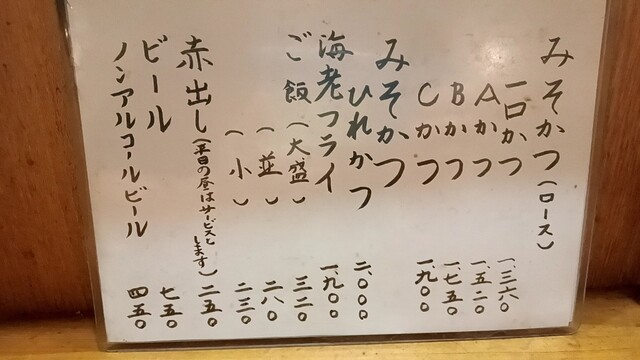 みそかつ(ロース)
一口かつ 一、三六〇
Aかつ 一、五二〇
Bかつ 一、七五〇
Cかつ 一、九〇〇
みそかつ
ひれかつ 二、〇〇〇
海老フライ 一、九〇〇
ご飯(大盛) 三二〇
(並) 二八〇
(小) 二三〇
赤出し(平日の昼はサービスとします) 二五〇
ビール 七五〇
ノンアルコールビール 四五〇